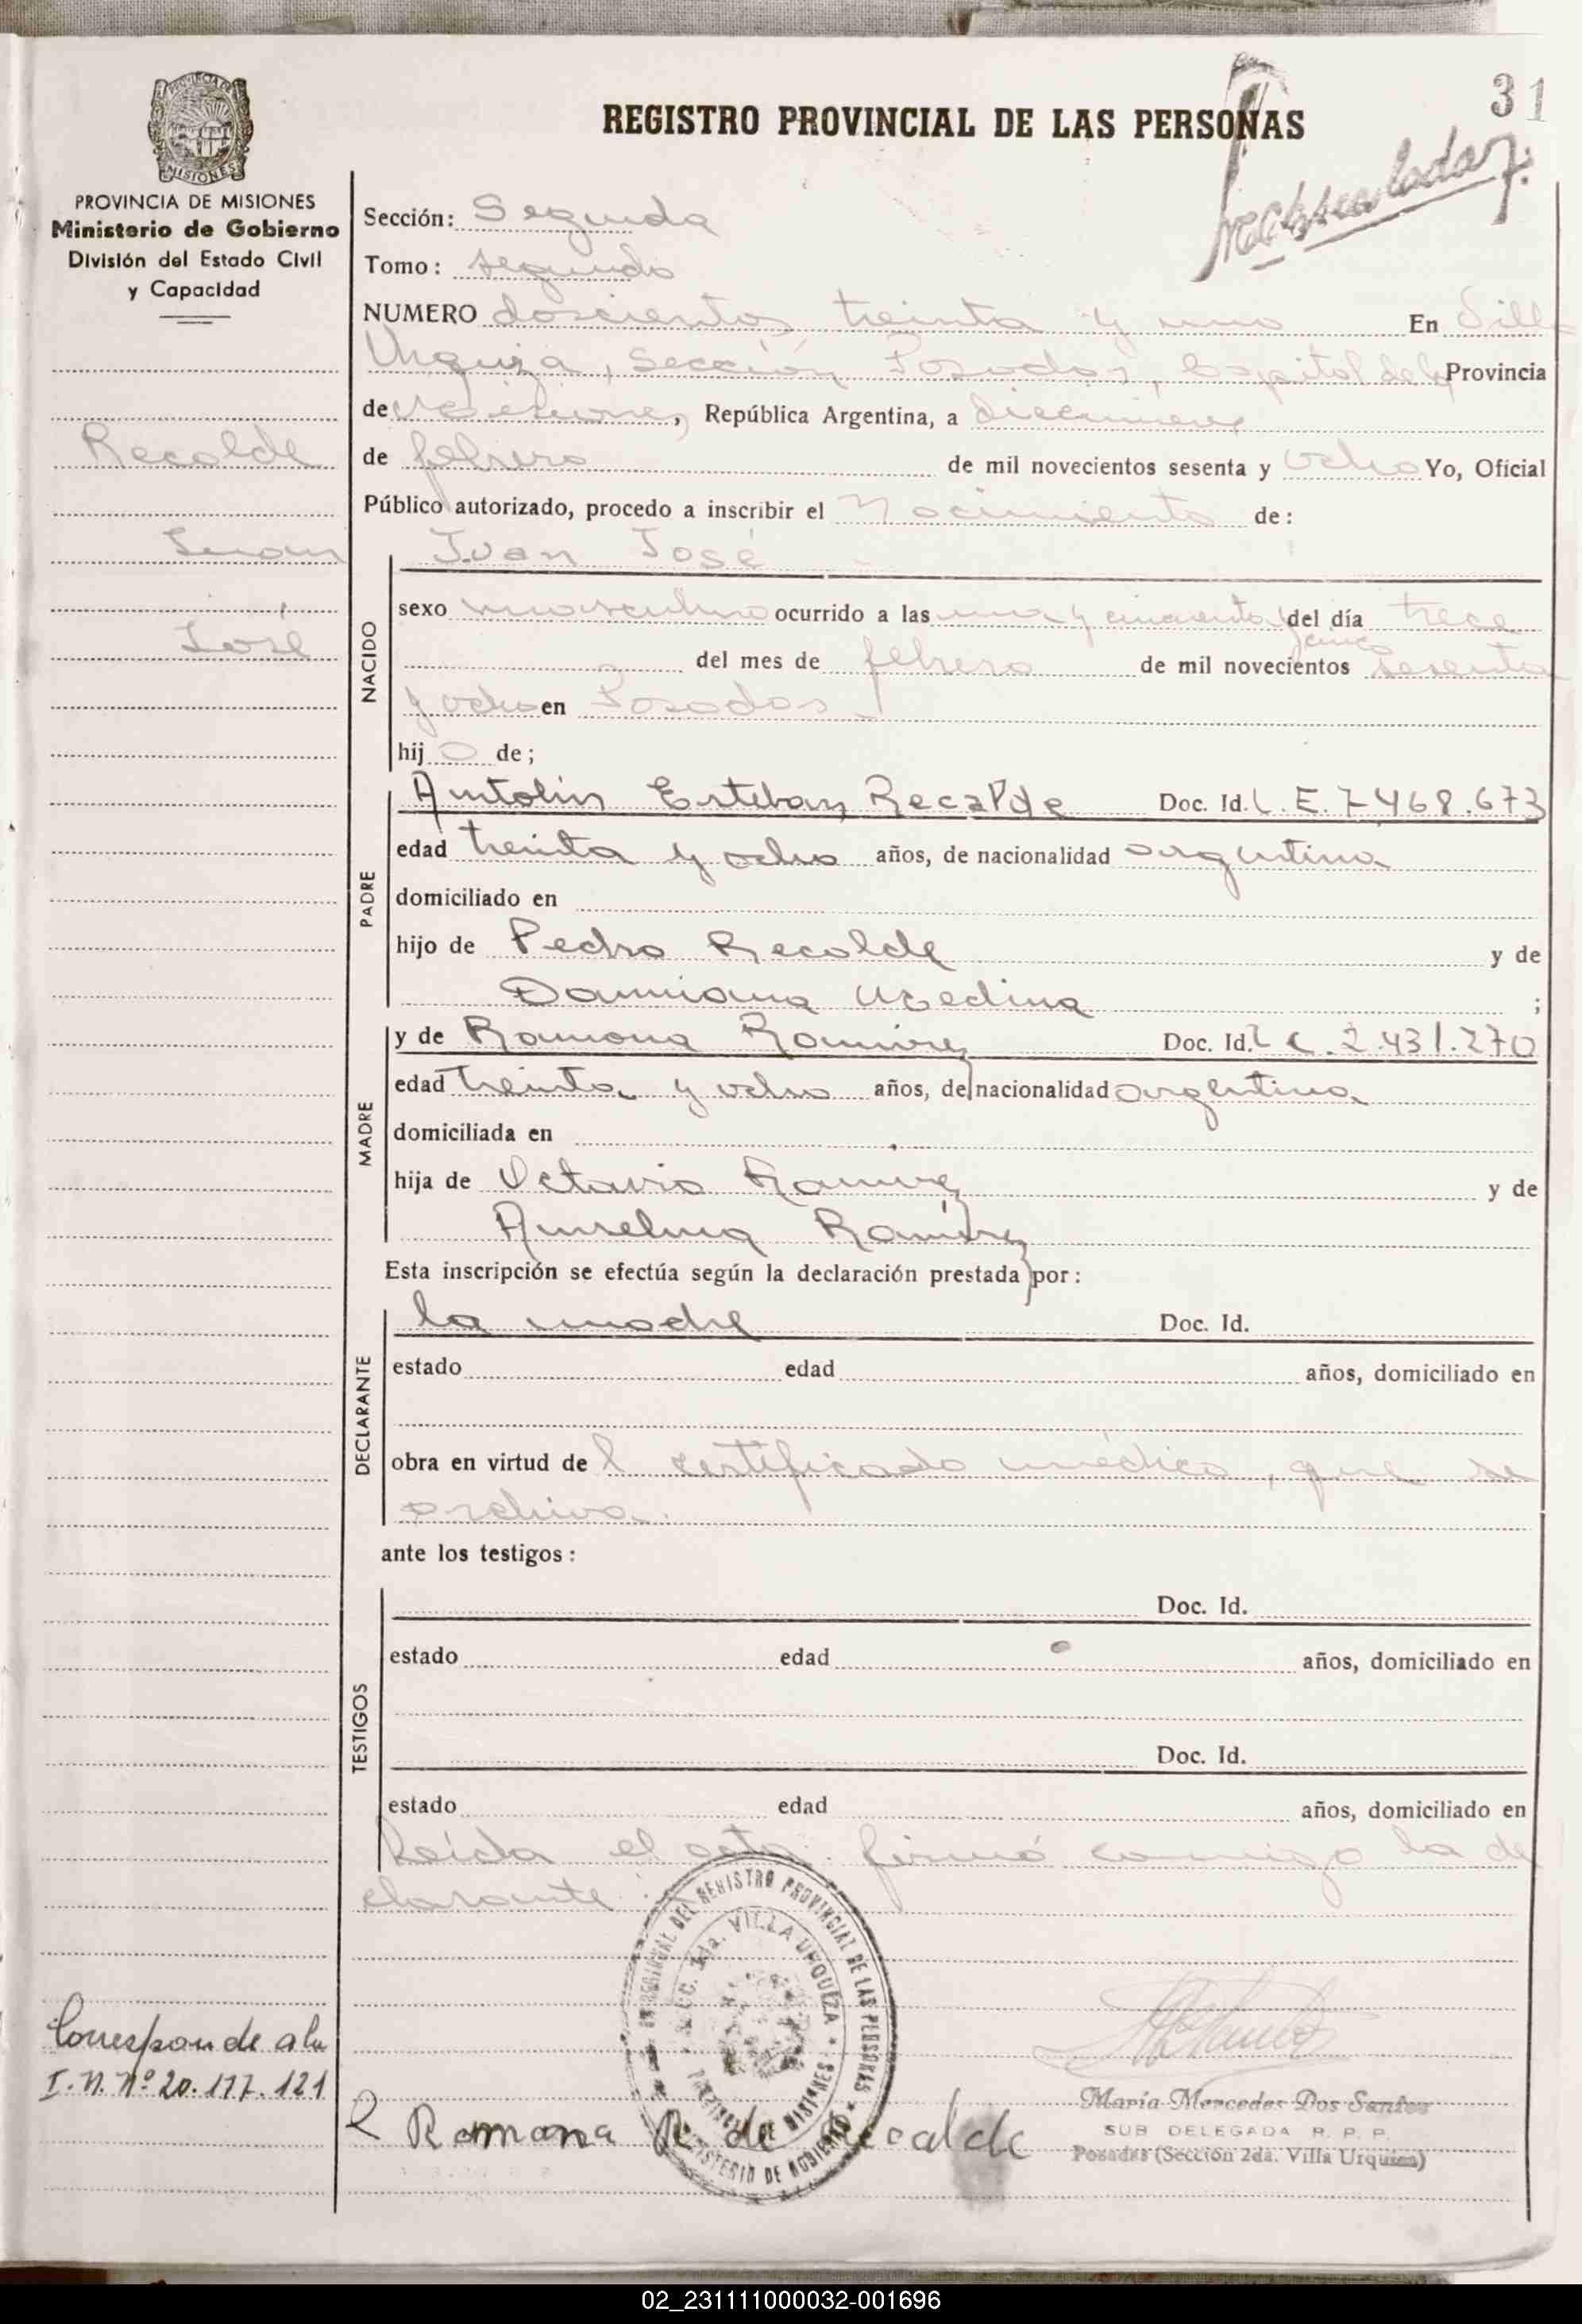 31
REGISTRO PROVINCIAL DE LAS PERSONAS
MISIONES
PROVINCIA DE MISIONES
Ministerio de Gobierno
División del Estado Civil
y Capacidad
Recalde
Juan
José
Sección: Segunda
Tomo: segundo
NUMERO doscientos treinta y uno En Villa
Urquiza, Sección Posadas, Capital de la Provincia
de Misiones, República Argentina, a diecinueve
de febrero de mil novecientos sesenta y ocho Yo, Oficial
Público autorizado, procedo a inscribir el Nacimiento de:
NACIDO
Juan José
sexo masculino ocurrido a las una y cincuenta y cinco del día trece
del mes de febrero de mil novecientos sesenta
y ocho en Posadas
hij o de;
PADRE
Antolin Esteban Recalde Doc. Id. L.E. 7468.673
edad treinta y ocho años, de nacionalidad argentina
domiciliado en
hijo de Pedro Recalde y de
Damiana Medina ;
MADRE
y de Ramona Ramirez Doc. Id. L C. 2.431.270
edad treinta y ocho años, de nacionalidad argentina
domiciliada en
hija de Octavio Ramirez y de
Anselma Ramirez
Esta inscripción se efectúa según la declaración prestada por:
DECLARANTE
la madre Doc. Id.
estado edad años, domiciliado en
obra en virtud de l certificado médico, que se
archiva.
ante los testigos:
TESTIGOS
Doc. Id.
estado edad años, domiciliado en
Doc. Id.
estado edad años, domiciliado en
Leída el acta firmó conmigo la de
clarante.
REGISTRO PROVINCIAL DE LAS PERSONAS
SECC. 2da. VILLA URQUIZA
PROVINCIA DE MISIONES
MINISTERIO DE GOBIERNO
Corresponde a la
I.N. Nº 20.177.121
Romana R de Recalde
María Mercedes Dos Santos
SUB DELEGADA R. P. P.
Posadas (Sección 2da. Villa Urquiza)
02_231111000032-001696